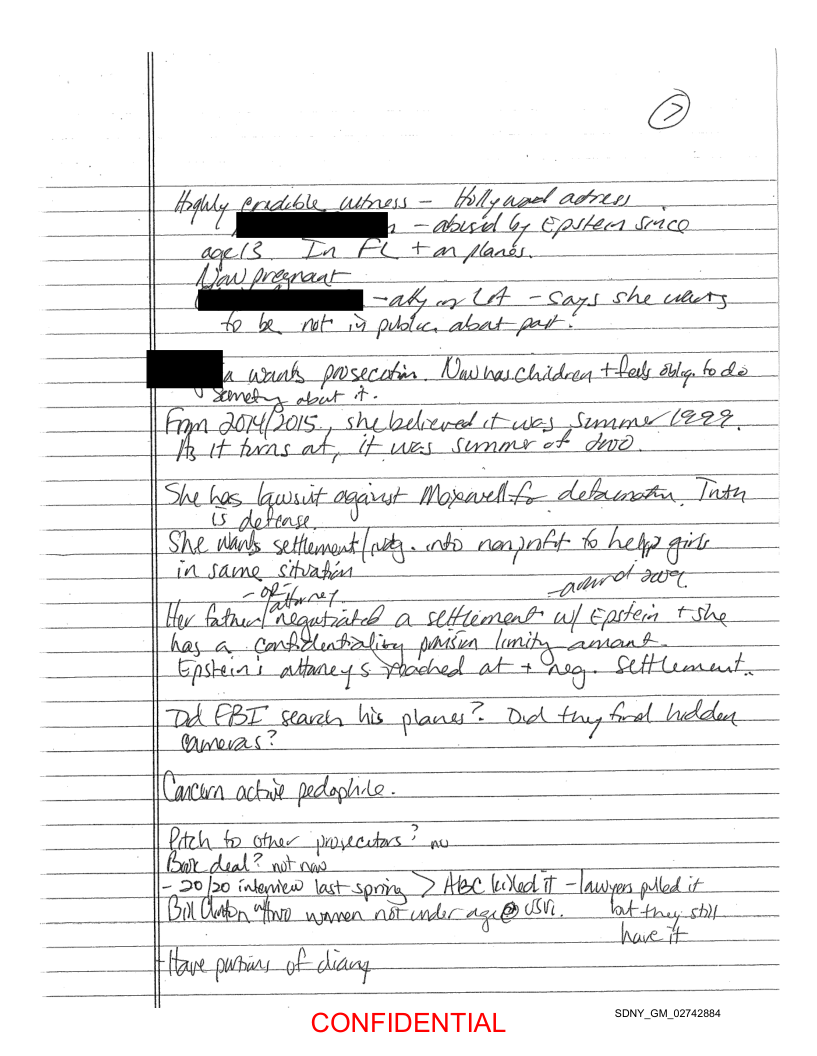 7
Highly credible witness – Hollywood actress
– abused by Epstein since
age 13. In FL + on planes.
Now pregnant
– atty in LA – says she wants
to be not in public about past.
a wants prosecution. Now has children + feels oblig. to do
something about it.
From 2014/2015, she believed it was summer 1999.
As it turns out, it was summer of 2000.
She has lawsuit against Maxwell for defamation. Truth
is defense.
She wants settlement/ into nonprofit to help girls
in same situation
– or attorney
– around 2009.
Her father/negotiated a settlement w/ Epstein + she
has a confidentiality provision limity amount.
Epstein's attorneys reached out + neg. settlement.
Did FBI search his planes? Did they find hidden
cameras?
Concern active pedophile.
Pitch to other prosecutors? no
Book deal? not now
– 20/20 interview last spring > ABC killed it – lawyers pulled it
but they still
have it
Bill Clinton w/ two women not under age @ USVI.
– Have portions of diary
CONFIDENTIAL
SDNY_GM_02742884